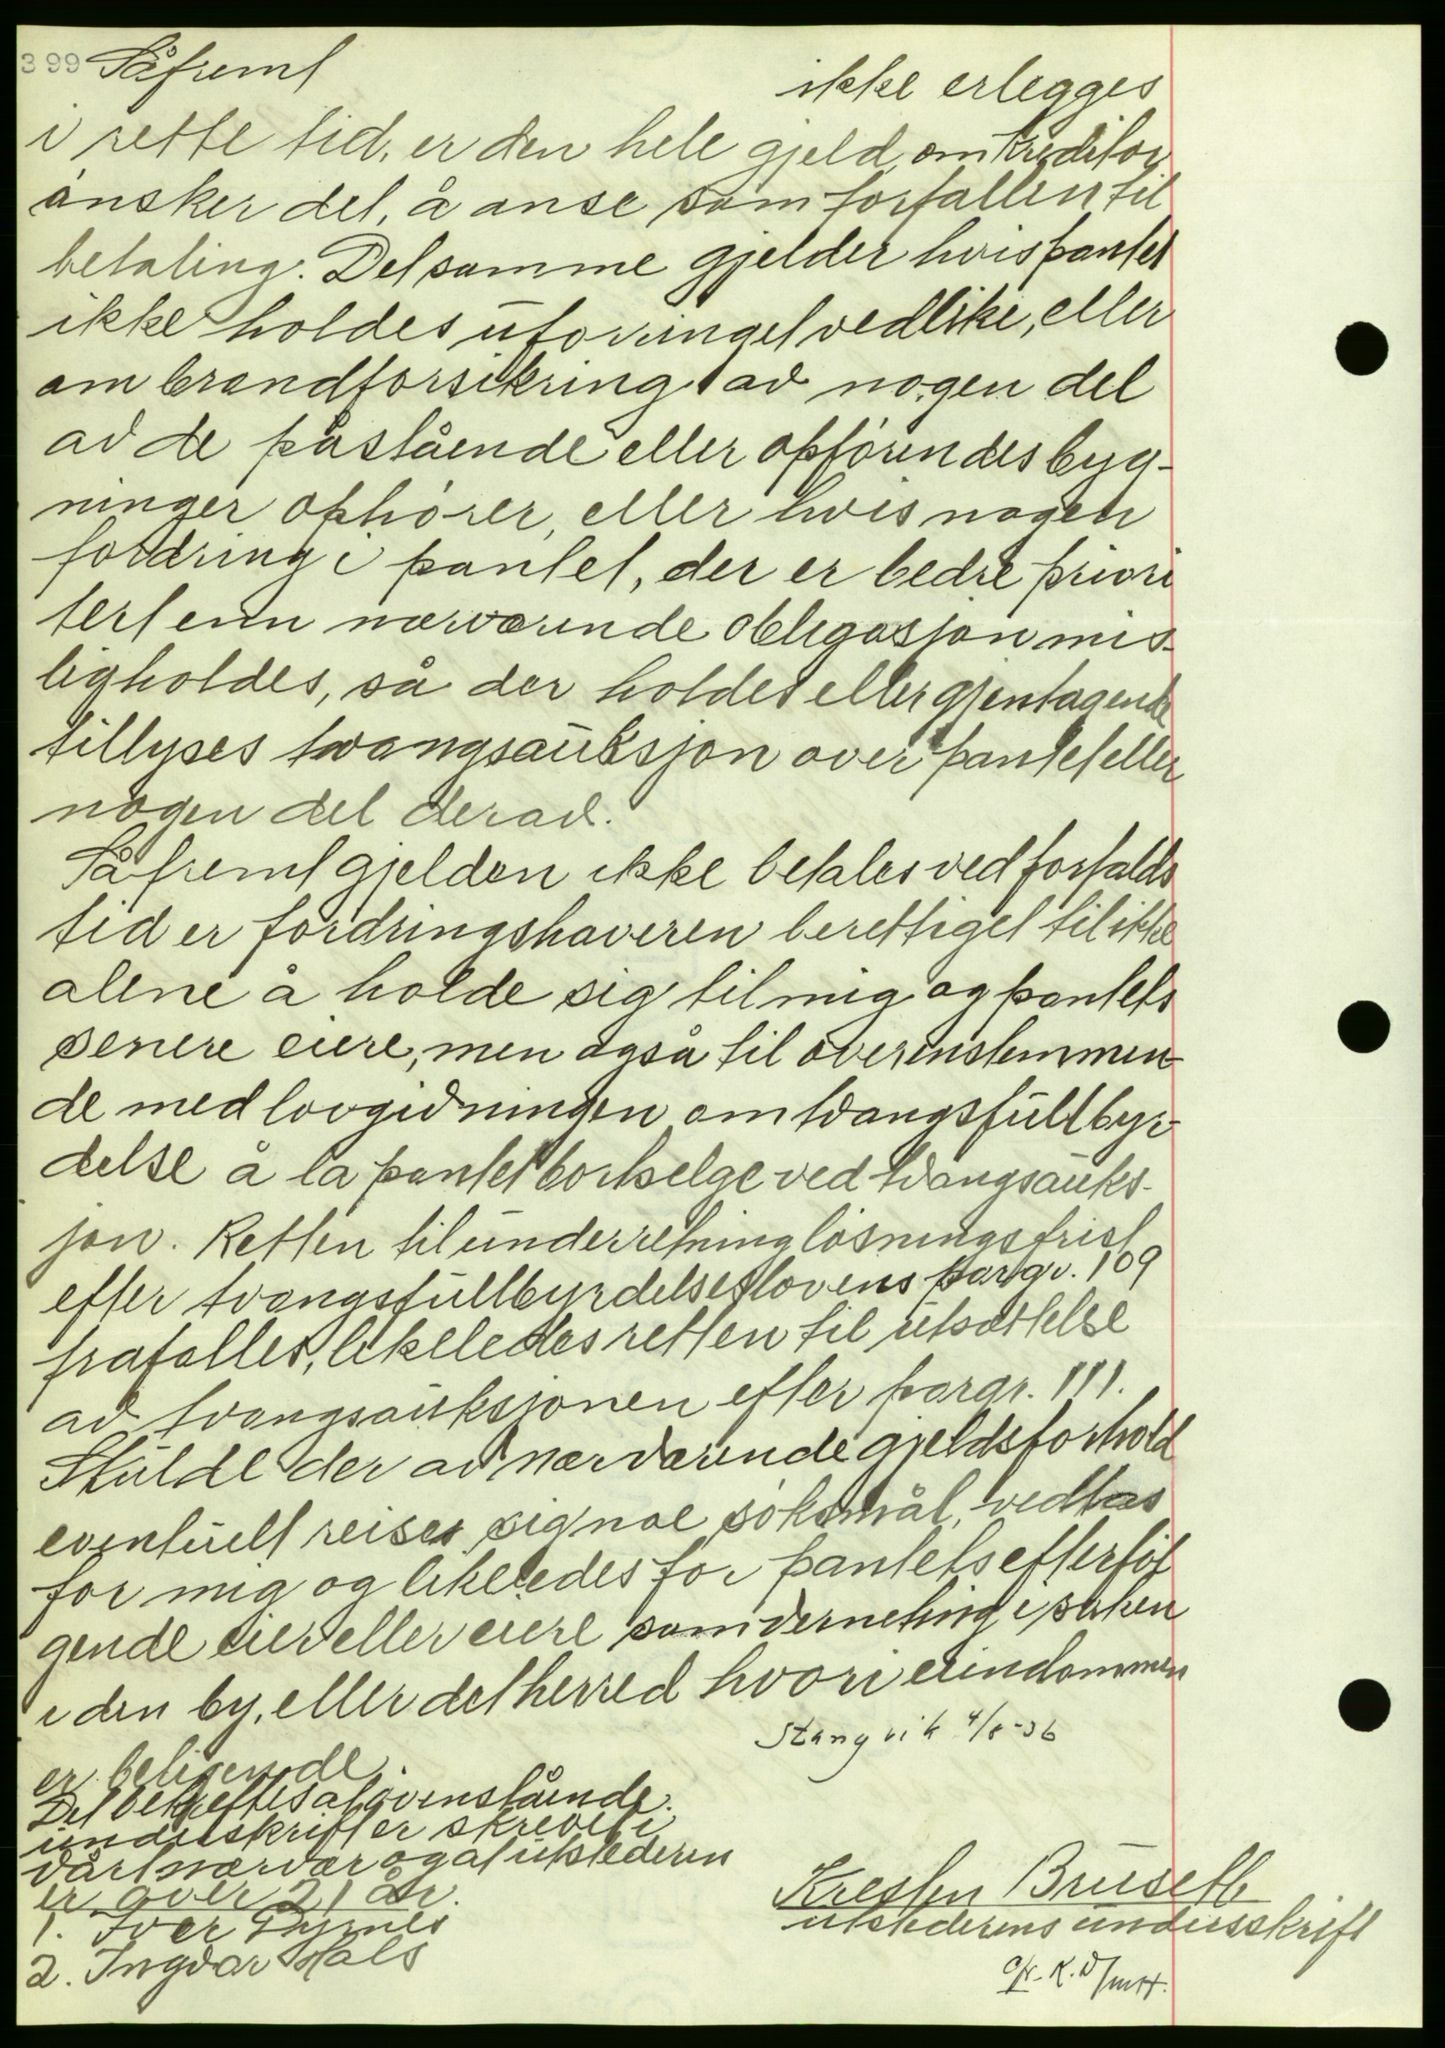 399 Såfremt ikke erlegges
i rette tid, er den hele gjeld, om kreditor
ønsker det, å anse som forfallen til
betaling. Det samme gjelder hvis pantet
ikke holdes uforringet vedlike, eller
om brandforsikring av nogen del
av de påstående eller opførendes byg-
ninger ophører, eller hvis nogen
fordring i pantet, der er bedre priori
tert enn nærværende obligasjon mis-
ligholdes, så der holdes eller gjentagende
tillyses tvangsauksjon over pantet eller
nogen del derav.
Såfremt gjelden ikke betales ved forfalds
tid er fordringshaveren berettiget til ikke
alene å holde sig til mig og pantets
senere eiere, men også til overenstemmen-
de med lovgivningen om tvangsfullbyr-
delse å la pantet bortselge ved tvangsauks-
jon. Retten til underretning løsningsfrist
efter tvangsfullbyrdelseslovens pargr. 109
frafalles, likeledes retten til utsættelse
av tvangsauksjonen efter pargr. 111.
Skulde der av nærværende gjeldsforhold
eventuelt reises sig noe søksmål, vedtas
for mig og likeledes for pantets efterføl
gende eier eller eiere som verneting i saken
i den by, eller det herred hvori eiendommen
Stangvik 4/8-36
er beligende.
Det bekreftes at ovenstående
underskrift er skrevet i
vårt nærvær og at utstederen
er over 21 år.
1. Iver Dyrnes
2. Ingvar Hals
Kresten Brusetb
utstederens undersskrift